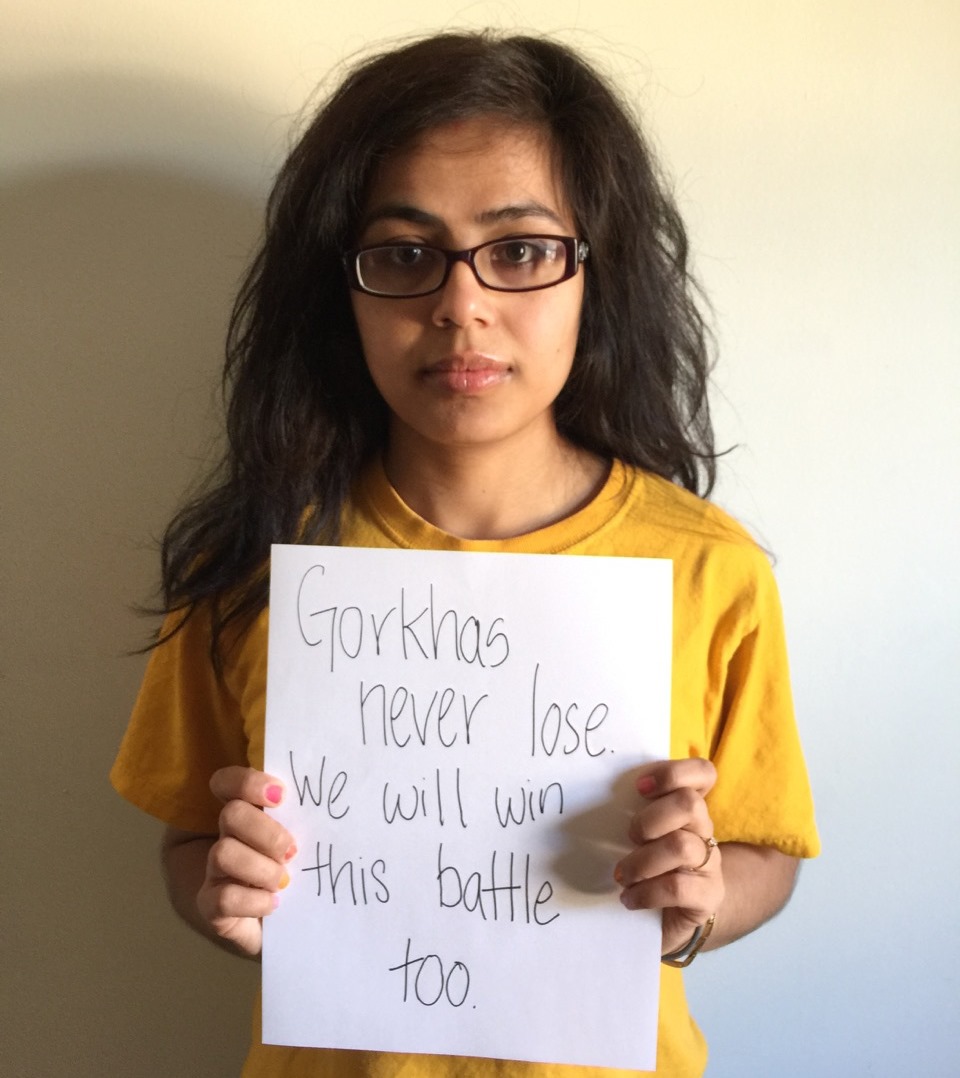 Gorkhas
never lose.
We will win
this battle
too.